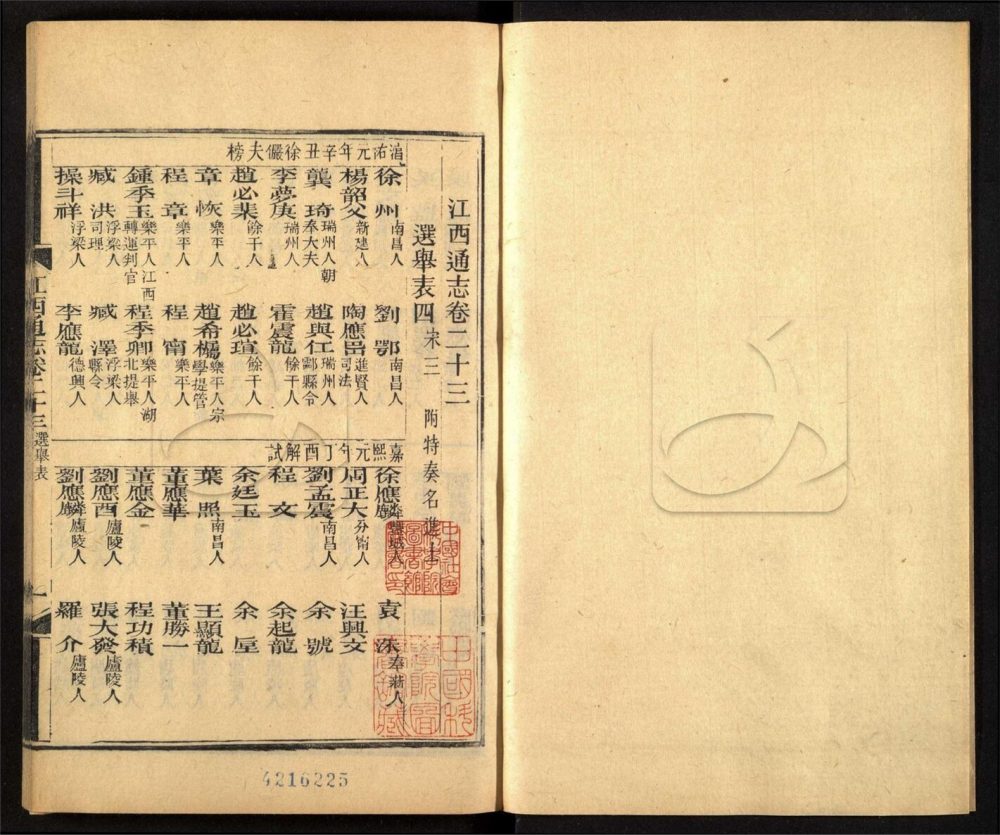 江西通志卷二十三
選舉表四 宋三 附特奏名進士
淳祐元年辛丑徐儼夫榜
徐州 南昌人 劉鄂 南昌人
楊韶父 新建人 陶應嵒 進賢人司法
龔琦 瑞州人朝奉大夫 趙與仁 瑞州人酃縣令
李夢庚 瑞州人 霍震龍 餘干人
趙必棐 餘干人 趙必瑄 餘干人
章恢 樂平人 趙希 樂平人宗學提管
程章 樂平人 程甯 樂平人
鍾季玉 樂平人江西轉運判官 程季卿 樂平人湖北提舉
臧洪 浮梁人司理 臧澤 浮梁人縣令
操斗祥 浮梁人 李應龍 德興人
嘉熙元年丁酉解試
徐應麟 豐城人 袁洙 奉新人
周正大 分甯人 汪興文
劉孟震 南昌人 余號
程文 余起龍
余廷玉 余垕
葉照 南昌人 王顯龍
董應華 董勝一
董應金 程功積
劉應酉 廬陵人 張大發 廬陵人
劉應麟 廬陵人 羅介 廬陵人
江西通志卷二十三 選舉表 一
4216225